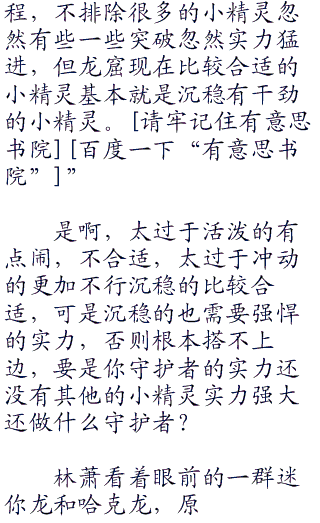 程，不排除很多的小精灵忽
然有些一些突破忽然实力猛
进，但龙窟现在比较合适的
小精灵基本就是沉稳有干劲
的小精灵。[请牢记住有意思
书院][百度一下“有意思书
院”]”
是啊，太过于活泼的有
点闹，不合适，太过于冲动
的更加不行沉稳的比较合
适，可是沉稳的也需要强悍
的实力，否则根本搭不上
边，要是你守护者的实力还
没有其他的小精灵实力强大
还做什么守护者？
林萧看着眼前的一群迷
你龙和哈克龙，原